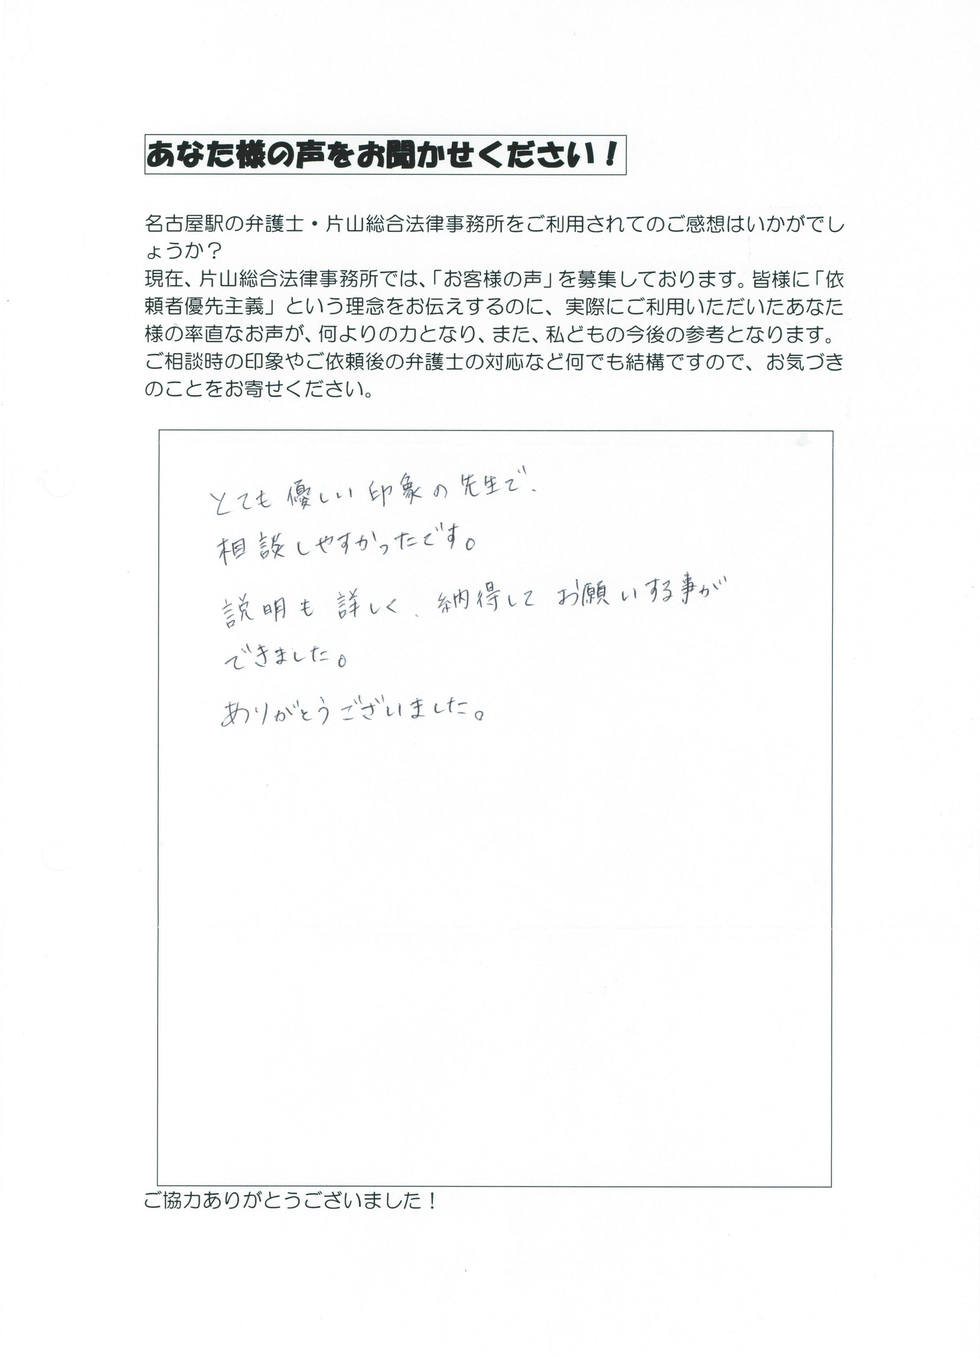 あなた様の声をお聞かせください！
名古屋駅の弁護士・片山総合法律事務所をご利用されてのご感想はいかがでし
ょうか？
現在、片山総合法律事務所では、「お客様の声」を募集しております。皆様に「依
頼者優先主義」という理念をお伝えするのに、実際にご利用いただいたあなた
様の率直なお声が、何よりの力となり、また、私どもの今後の参考となります。
ご相談時の印象やご依頼後の弁護士の対応など何でも結構ですので、お気づき
のことをお寄せください。
とても優しい印象の先生で、
相談しやすかったです。
説明も詳しく、納得してお願いする事が
できました。
ありがとうございました。
ご協力ありがとうございました！